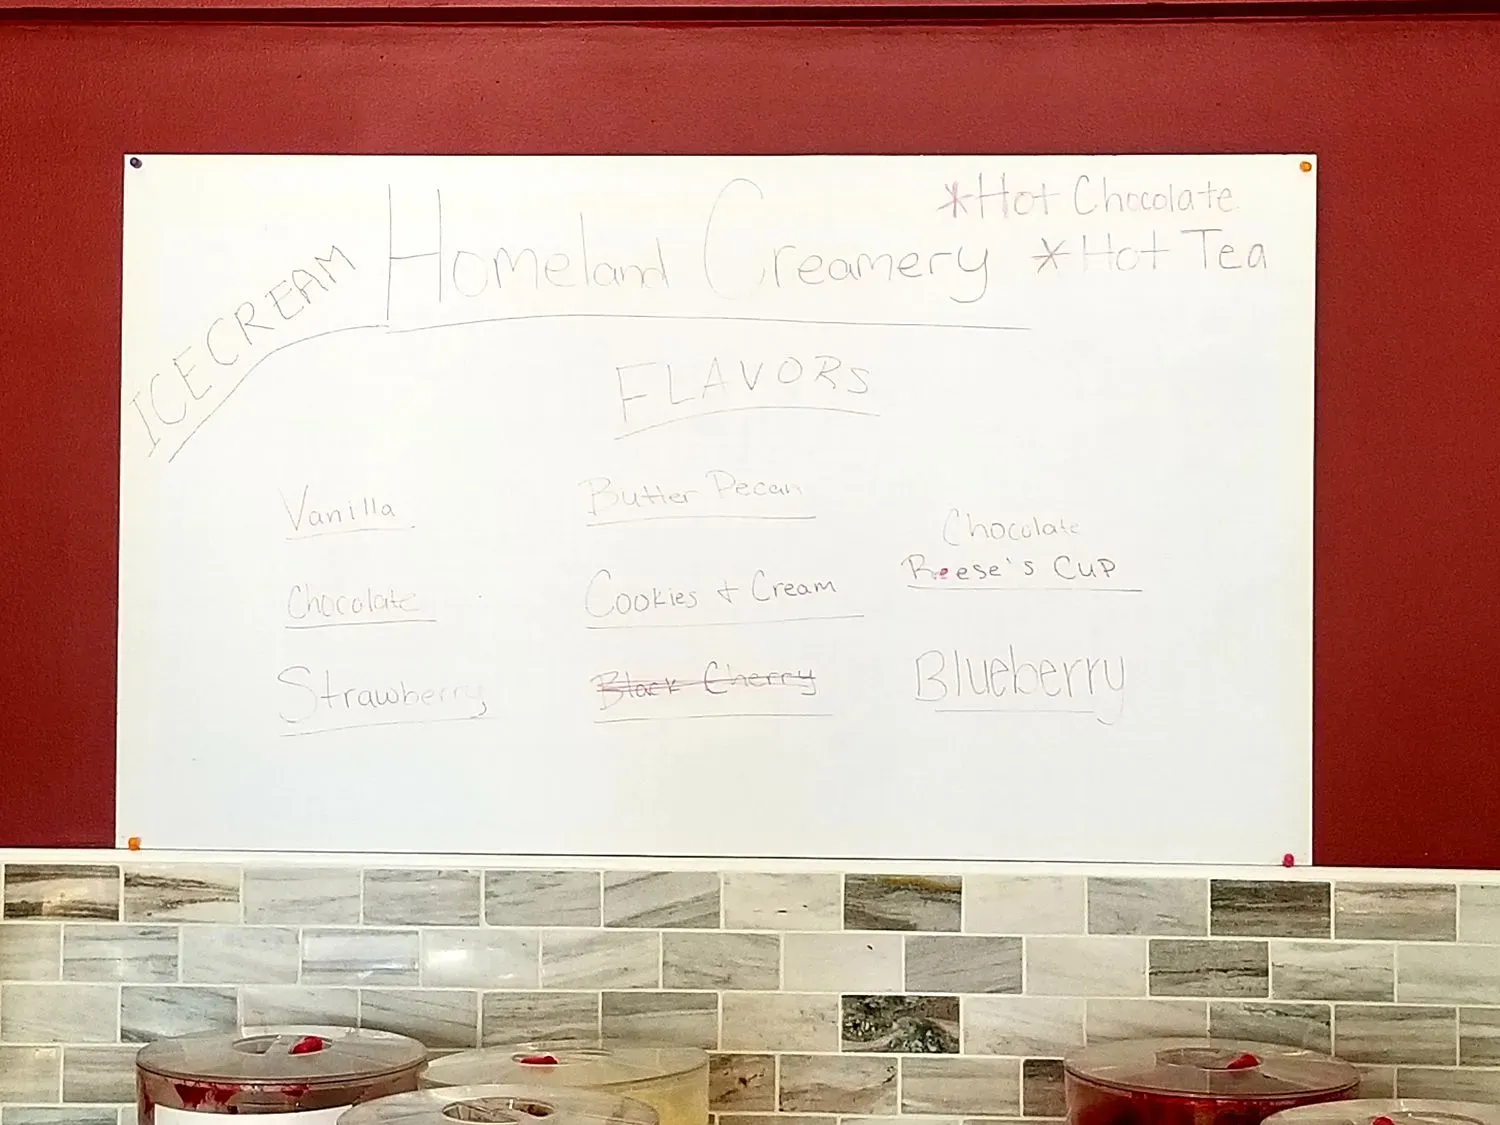 ICECREAM
Homeland Creamery
*Hot Chocolate
*Hot Tea
FLAVORS
Vanilla
Chocolate
Strawberry
Butter Pecan
Cookies + Cream
Black Cherry
Chocolate
Reese's Cup
Blueberry